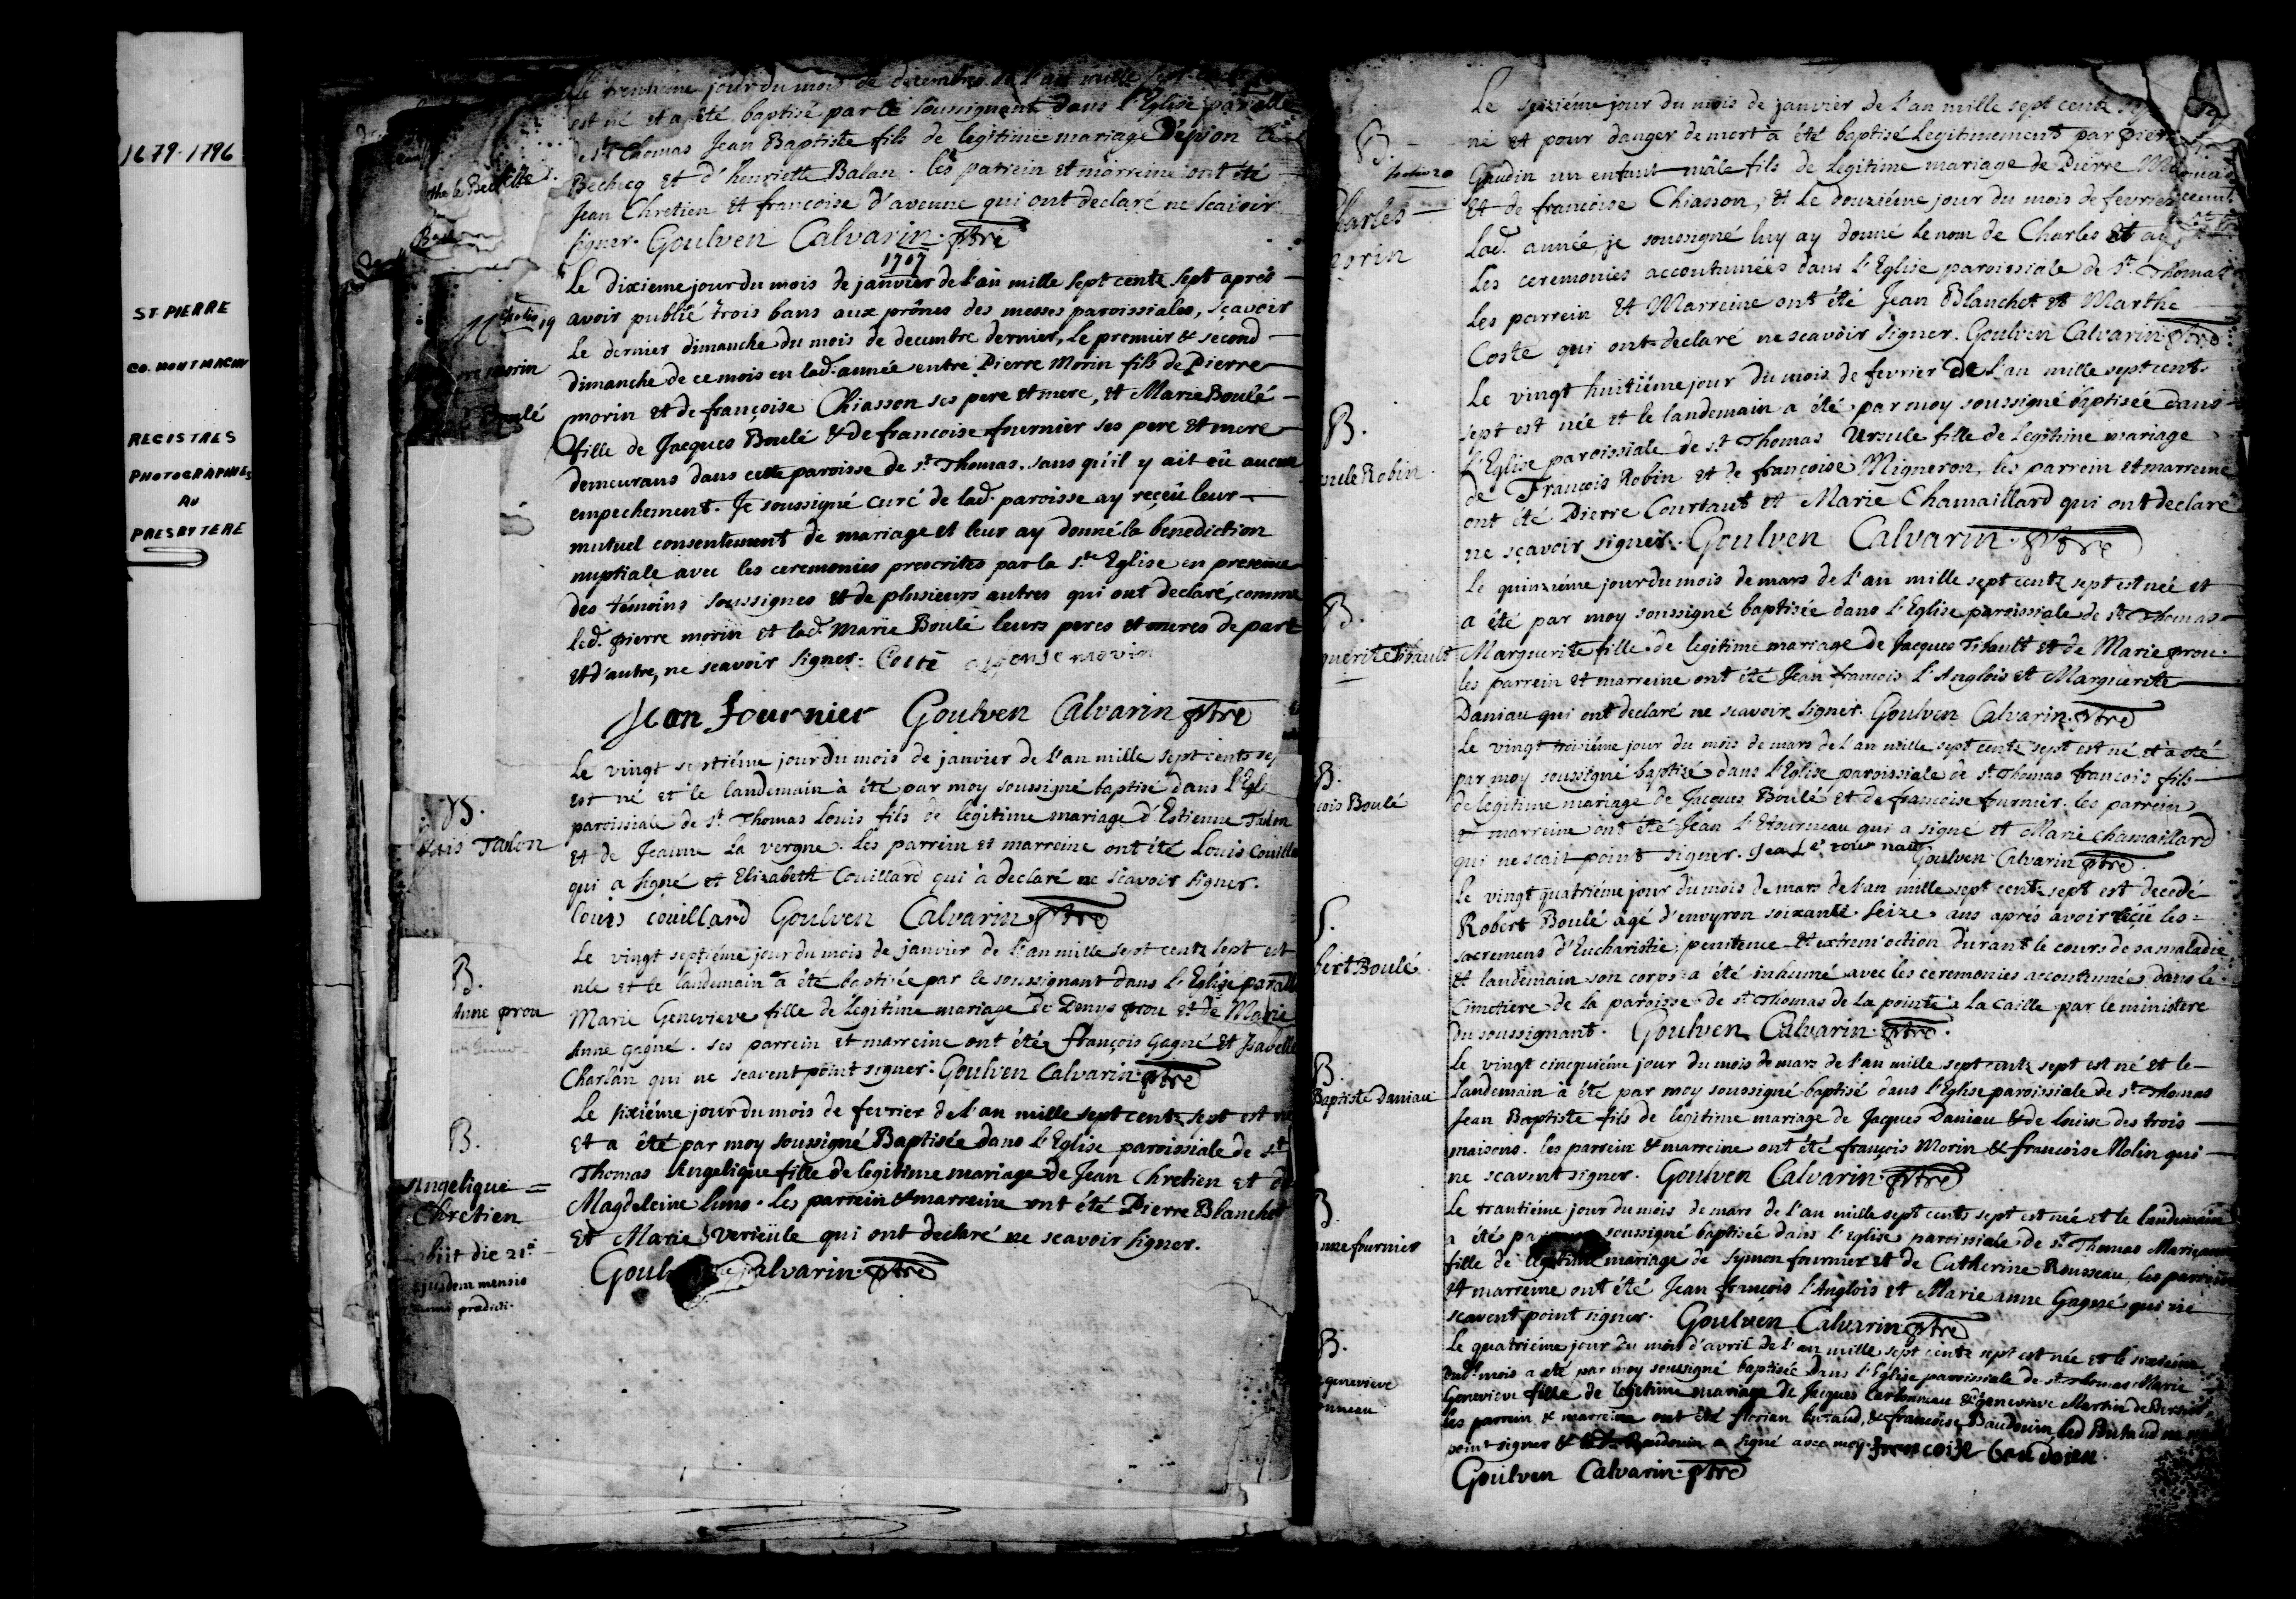 1679-1796
ST PIERRE
CO. MONTMAGNY
REGISTRES
PHOTOGRAPHIES
AU
PRESBYTERE
Le trentiéme jour du mois de decembre de l'an mille
est né et a été baptisé par le soussignant dans l'Eglise par.alle
de st Thomas Jean Baptiste fils de legitime mariage de pion le
Bechecq et d'henriette Balan. les patrein et marreine ont été
Jean Chretien et francoise d'avenne qui ont declaré ne scavoir
signer. Goulven Calvarin ptre
1707
19
morin
Boulé
Le dixieme jour du mois de janvier de l'an mille sept centz sept aprés
avoir publié trois bans aux prônes des messes paroissiales, sçavoir
Le dernier dimanche du mois de decembre dernier, le premier & second
dimanche de ce mois en lad. année entre Pierre Morin fils de Pierre
morin et de françoise Chiasson ses pere et mere, et Marie Boulé
fille de Jacques Boulé & de francoise fournier ses pere et mere
demeurans dans cette paroisse de st Thomas. sans qu'il y ait eû aucun
empechement. Je soussigné curé de lad. paroisse ay reçeü leur
mutuel consentement de mariage et leur ay donné la benediction
nuptiale avec les ceremonies prescrites par la ste Eglise en presence
des témoins soussignes et de plusieurs autres qui ont declaré, comme
led. pierre morin et lad. Marie Boulé leurs peres et meres de part
et d'autre, ne scavoir signer. Coste alfonse movin
Jean fournier Goulven Calvarin ptre
B.
Talon
Le vingt septiéme jour du mois de janvier de l'an mille sept cents sep
est né et le landemain à été par moy soussigné baptisé dans l'Egl
paroissiale de st Thomas Louis fils de legitime mariage d'Estienne Talon
et de Jeanne La vergne. Les parrein et marreine ont été Louis Couilla
qui a signé et Elizabeth Couillard qui à declaré ne scavoir signer.
louis couillard Goulven Calvarin ptre
B.
Anne prou
Le vingt septiéme jour du mois de janvier de l'an mille sept centz sept est
née et le landemain a été baptisée par le soussignant dans l'Eglise par.alle
Marie Genevieve fille de legitime mariage de Denys prou et de Marie
Anne gagné. ses parrein et marreine ont été françois Gagné et Isabelle
Charlan qui ne scavent point signer. Goulven Calvarin ptre
B.
Angelique
Chretien
obiit die 21a
ejusdem mensis
anni prædicti.
Le sixiéme jour du mois de fevrier de l'an mille sept centz sept est né
et a été par moy soussigné Baptisée dans l'Eglise paroissiale de st
Thomas Angelique fille de legitime mariage de Jean Chretien et de
Magdeleine Simo. Les parrein & marreine ont été Pierre Blanchet
et Marie verieüle qui ont declaré ne scavoir signer.
Goul Calvarin ptre
B.
Charles
morin
Le seiziéme jour du mois de janvier de l'an mille sept centz
né et pour danger de mort à été baptisé legitimement par pierre
Gaudin un enfant mâle fils de legitime mariage de Pierre
et de francoise Chiasson, et Le douziéme jour du mois de fevrier
Lad. année, je soussigné luy ay donné le nom de Charles et ay
Les ceremonies accoutumées dans l'Eglise paroissiale de st Thomas
Les parrein et Marreine ont été Jean Blanchet et Marthe
Coste qui ont declaré ne scavoir signer. Goulven Calvarin ptre
B.
Robin
Le vingt huitiéme jour du mois de fevrier de l'an mille sept cents
sept est née et le landemain a été par moy soussigné baptisée dans
l'Eglise paroissiale de st Thomas Ursule fille de legitime mariage
de François Robin et de françoise Migneron, les parrein et marreine
ont été Pierre Courtaut et Marie Chamaillard qui ont declaré
ne sçavoir signer. Goulven Calvarin ptre
B.
Le quinziéme jour du mois de mars de l'an mille sept centz sept est née et
a été par moy soussigné baptisée dans l'Eglise paroissiale de st Thomas
Marguerite fille de legitime mariage de Jacques Tibault et de Marie prou.
les parrein et marreine ont été Jean françois l'Anglois et Marguerite
Daniau qui ont declaré ne scavoir signer. Goulven Calvarin ptre
B.
cois Boulé
Le vingt troisiéme jour du mois de mars de l'an mille sept centz sept est né et a été
par moy soussigné baptizé dans l'Eglise paroissiale de st Thomas francois fils
de legitime mariage de Jacques Boulé et de francoise fournier. les parrein
et marreine ont été Jean l'Etourneau qui a signé et Marie chamaillard
qui ne scait point signer. Jean Letournau
Goulven Calvarin ptre
S.
bert Boulé
Le vingt quatriéme jour du mois de mars de l'an mille sept centz sept est decedé
Robert Boulé agé d'envyron soixante-seize ans aprés avoir reçü les
sacremens d'Eucharistie, penitence et extrem'oction durant le cours de sa maladie
et landemain son corps a été inhumé avec les ceremonies accoutumées dans le
cimetiere de la paroisse de st Thomas de la pointe a la caille par le ministere
du soussignant. Goulven Calvarin ptre.
B.
Baptiste Daniau
Le vingt cincquiéme jour du mois de mars de l'an mille sept centz sept est né et le
landemain à été par moy soussigné baptisé dans l'Eglise paroissiale de st Thomas
Jean Baptiste fils de legitime mariage de Jacques Daniau & de Louise des trois
maisons. les parrein & marreine ont été françois Morin & francoise Nolin qui
ne scavent signer. Goulven Calvarin ptre
B
anne fournier
Le trantiéme jour du mois de mars de l'an mille sept cents sept est née et le landemain
a été par soussigné baptisée dans l'eglise paroissiale de st Thomas Marie anne
fille de legitime mariage de Symon fournier et de Catherine Rousseau, les parrein
et marreine ont été Jean françois l'Anglois et Marie anne Gagné qui ne
scavent point signer. Goulven Calvarin ptre
B.
genevieve
onneau
Le quatriéme jour du mois d'avril de l'an mille sept centz sept est née et le sixiéme
dud. mois a été par moy soussigné baptisée dans l'Eglise paroissiale de st Thomas Marie
Genevieve fille de legitime mariage de Jacques Carbonneau & genevieve Martin
les parrein & marreine ont été florian butaud, & francoise Baudouin, led Butaud ne
point signer & Baudouin a signé avec moy. francoise baudoien.
Goulven Calvarin ptre